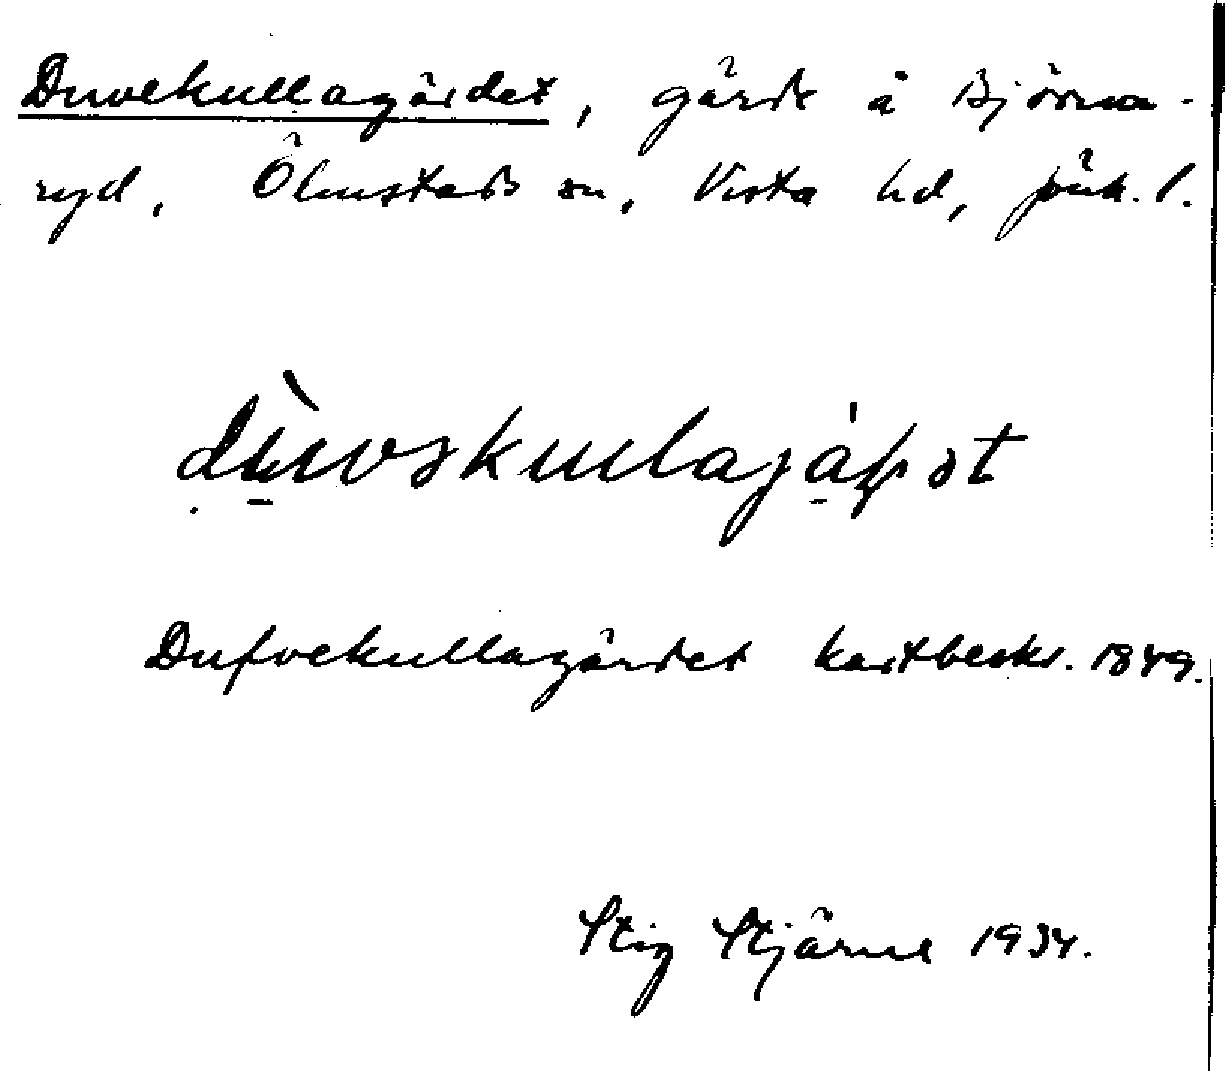 Duvekullagärdet, gärde å Björna-
ryd, Ölmstads sn, Vista hd, Jönk. l.
Dufvekullagärdet kartbeskr. 1849.
Stig Stjärne 1934.